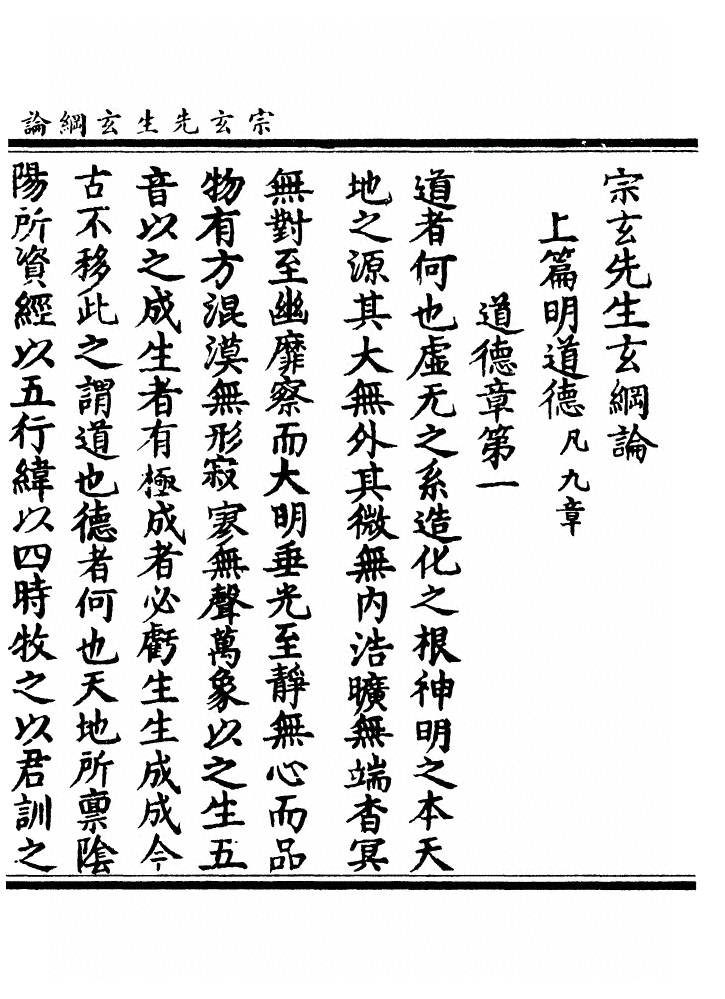 宗玄先生玄綱論
宗玄先生玄綱論
上篇明道德凡九章
道德章第一
道者何也虛无之系造化之根神明之本天
地之源其大無外其微無內浩曠無端杳冥
無對至幽靡察而大明垂光至靜無心而品
物有方混漠無形寂寥無聲萬象以之生五
音以之成生者有極成者必虧生生成成今
古不移此之謂道也德者何也天地所稟陰
陽所資經以五行緯以四時牧之以君訓之